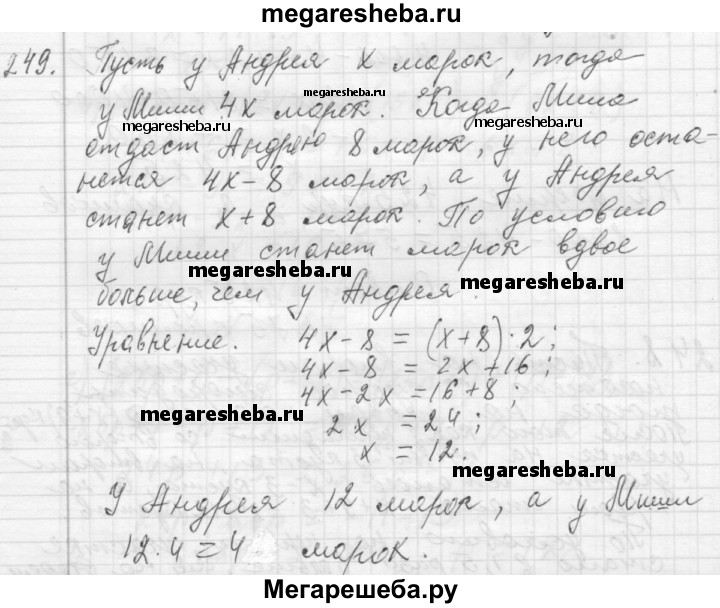 megaresheba.ru
249. Пусть у Андрея x марок, тогда
у Миши 4x марок. Когда Миша
megaresheba.ru
megaresheba.ru
megaresheba.ru
отдаст Андрею 8 марок, у него оста-
нется 4x-8 марок, а у Андрея
станет x+8 марок. По условию
у Миши станет марок вдвое
megaresheba.ru
больше, чем у Андрея.
Уравнение. 4x-8 = (x+8)·2;
4x-8 = 2x+16;
4x-2x =16+8;
megaresheba.ru
2x = 24;
x = 12.
megaresheba.ru
У Андрея 12 марок, а у Миши
12·4=4 марок.
megaresheba.ru
Мегарешеба.ру